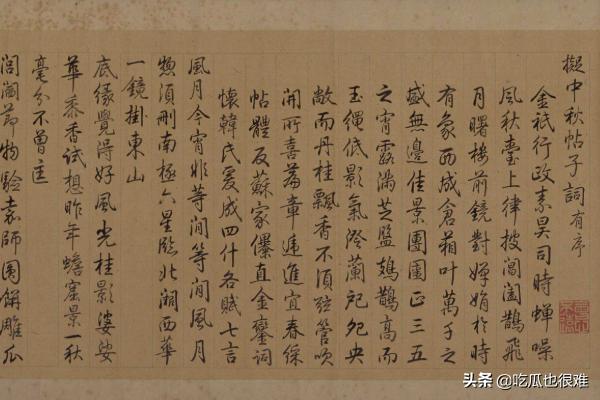 擬中秋帖子詞有序
金祇行政素昊司時蟬噪
風秋臺上律披閶闔鵲飛
月曙樓前鏡對嬋娟於時
有象西成倉箱叶萬千之
盛無邊佳景團圞正三五
之宵露滿芝盤鳷鵲高而
玉繩低影氣冷蘭央
敞而丹桂飄香不須弦管吹
開所喜篇章遞進宜春綵
帖體反蘇家儤直金鑾詞
懷韓氏爰成四什各賦七言
風月今宵非等閒等閒風月
惣須刪南極六星臨北闕西華
一鏡掛東山
底緣覺得好風光桂影婆娑
華黍香試想昨年蟾窟景一秋
毫分不曾匡
閭閻節物驗師圓餅雕瓜
头条 @吃瓜也很难